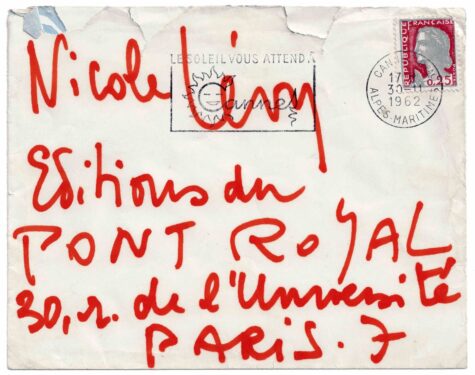 LE SOLEIL VOUS ATTEND À
Cannes
REPUBLIQUE FRANÇAISE
0,25
CANNES
17
1962
ALPES-MARITIMES
Nicole Lévy
Editions du
PONT ROYAL
30, r. de l'Université
PARIS. 7